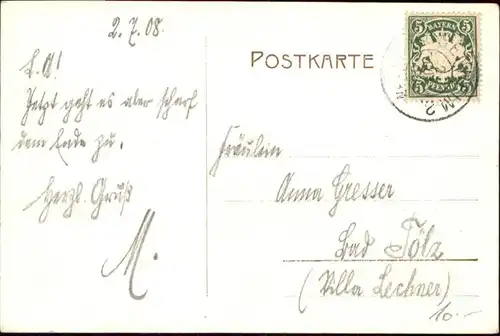 2. 7. 08.
L. A!
Jetzt geht es aber scharf
dem Ende zu.
Herzl. Gruß
M.
POSTKARTE
BAYERN
5 5
PFENNIG
Fräulein
Anna Gresser
Bad Tölz
(Villa Lechner)
10.-